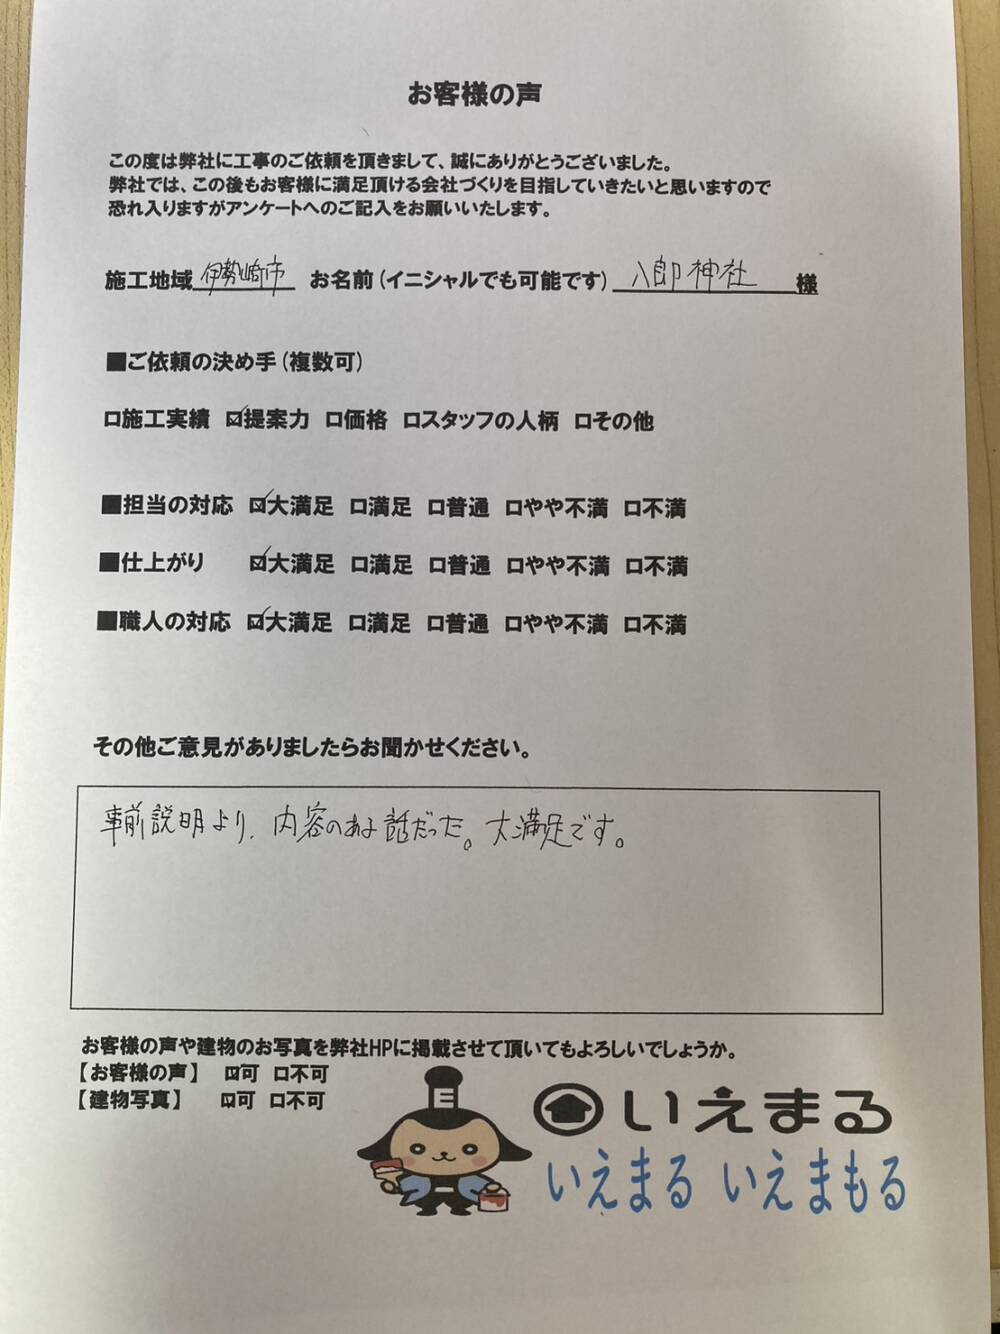 お客様の声
この度は弊社に工事のご依頼を頂きまして、誠にありがとうございました。
弊社では、この後もお客様に満足頂ける会社づくりを目指していきたいと思いますので
恐れ入りますがアンケートへのご記入をお願いいたします。
施工地域 伊勢崎市 お名前(イニシャルでも可能です) 八郎神社 様
■ご依頼の決め手(複数可)
□施工実績 ☑提案力 □価格 □スタッフの人柄 □その他
■担当の対応 ☑大満足 □満足 □普通 □やや不満 □不満
■仕上がり ☑大満足 □満足 □普通 □やや不満 □不満
■職人の対応 ☑大満足 □満足 □普通 □やや不満 □不満
その他ご意見がありましたらお聞かせください。
事前説明より、内容のある話だった。大満足です。
お客様の声や建物のお写真を弊社HPに掲載させて頂いてもよろしいでしょうか。
【お客様の声】 ☑可 □不可
【建物写真】 ☑可 □不可
E
いえまる
いえまる いえまもる